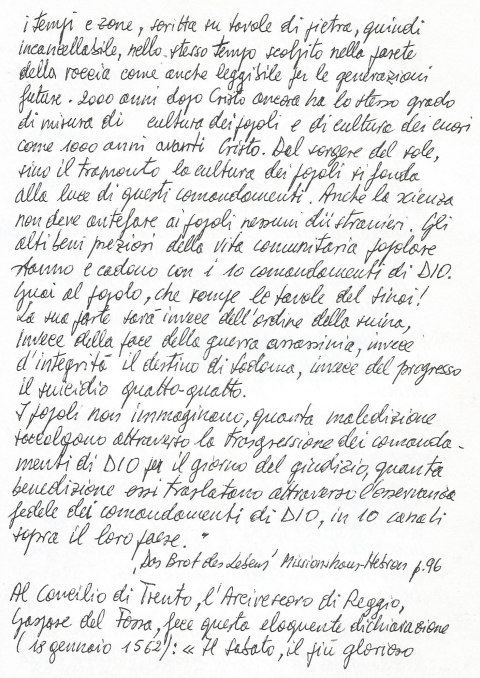 i tempi e zone, scritta su tavole di pietra, quindi
incancellabile, nello stesso tempo scolpito nella parete
della roccia come anche leggibile per le generazioni
future. 2000 anni dopo Cristo ancora ha lo stesso grado
di misura di cultura dei popoli e di cultura dei cuori
come 1000 anni avanti Cristo. Dal sorgere del sole,
sino il tramonto la cultura dei popoli si fonda
alla luce di questi comandamenti. Anche la scienza
non deve antefare ai popoli nessuni dii stranieri. Gli
alti beni preziosi della vita comunitaria popolare
stanno e cadono con i 10 comandamenti di DIO.
Guai al popolo, che rompe le tavole del sinai!
La sua parte sarà invece dell'ordine della ruina,
invece della pace della guerra assassinia, invece
d'integrità il destino di Sodoma, invece del progresso
il suicidio quatto-quatto.
I popoli non immaginano, quanta maledizione
raccolgono attraverso la trasgressione dei comanda-
menti di DIO per il giorno del giudizio, quanta
benedizione essi traslatano attraverso l'osservanza
fedele dei comandamenti di DIO, in 10 canali
sopra il loro paese."
'Das Brot des Lebens' Missionshaus-Hebron p. 96
Al Concilio di Trento, l'Arcivescovo di Reggio,
Gaspare del Fossa, fece questa eloquente dichiarazione
(18 gennaio 1562): « Il Sabato, il più glorioso